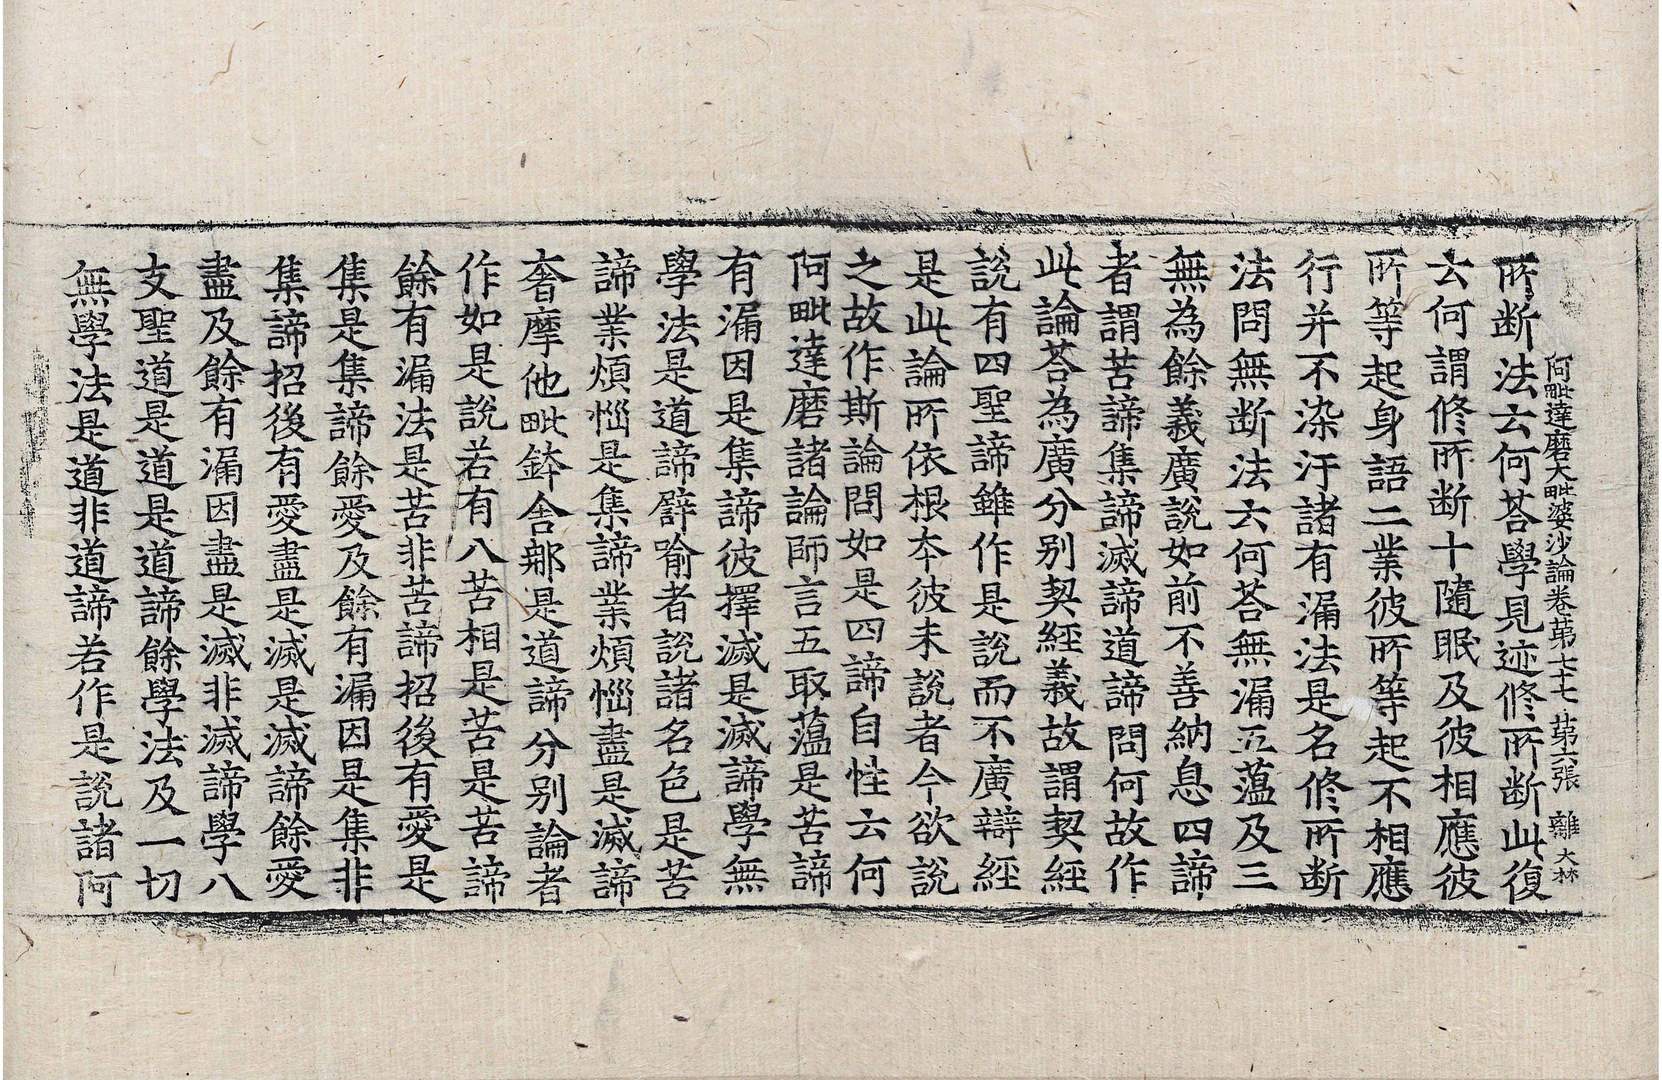 阿毗達磨大毗婆沙論卷第七十七 第六張 雜 大林
所斷法云何荅學見迹修所斷此復
云何謂修所斷十隨眠及彼相應彼
所等起身語二業彼所等起不相應
行并不染汙諸有漏法是名修所斷
法問無斷法云何荅無漏五蘊及三
無為餘義廣說如前不善納息四諦
者謂苦諦集諦滅諦道諦問何故作
此論荅為廣分別契經義故謂契經
說有四聖諦雖作是說而不廣辯經
是此論所依根本彼未說者今欲說
之故作斯論問如是四諦自性云何
阿毗達磨諸論師言五取蘊是苦諦
有漏因是集諦彼擇滅是滅諦學無
學法是道諦譬喻者說諸名色是苦
諦業煩惱是集諦業煩惱盡是滅諦
奢摩他毗鉢舍那是道諦分別論者
作如是說若有八苦相是苦是苦諦
餘有漏法是苦非苦諦招後有愛是
集是集諦餘愛及餘有漏因是集非
集諦招後有愛盡是滅是滅諦餘愛
盡及餘有漏因盡是滅非滅諦學八
支聖道是道是道諦餘學法及一切
無學法是道非道諦若作是說諸阿